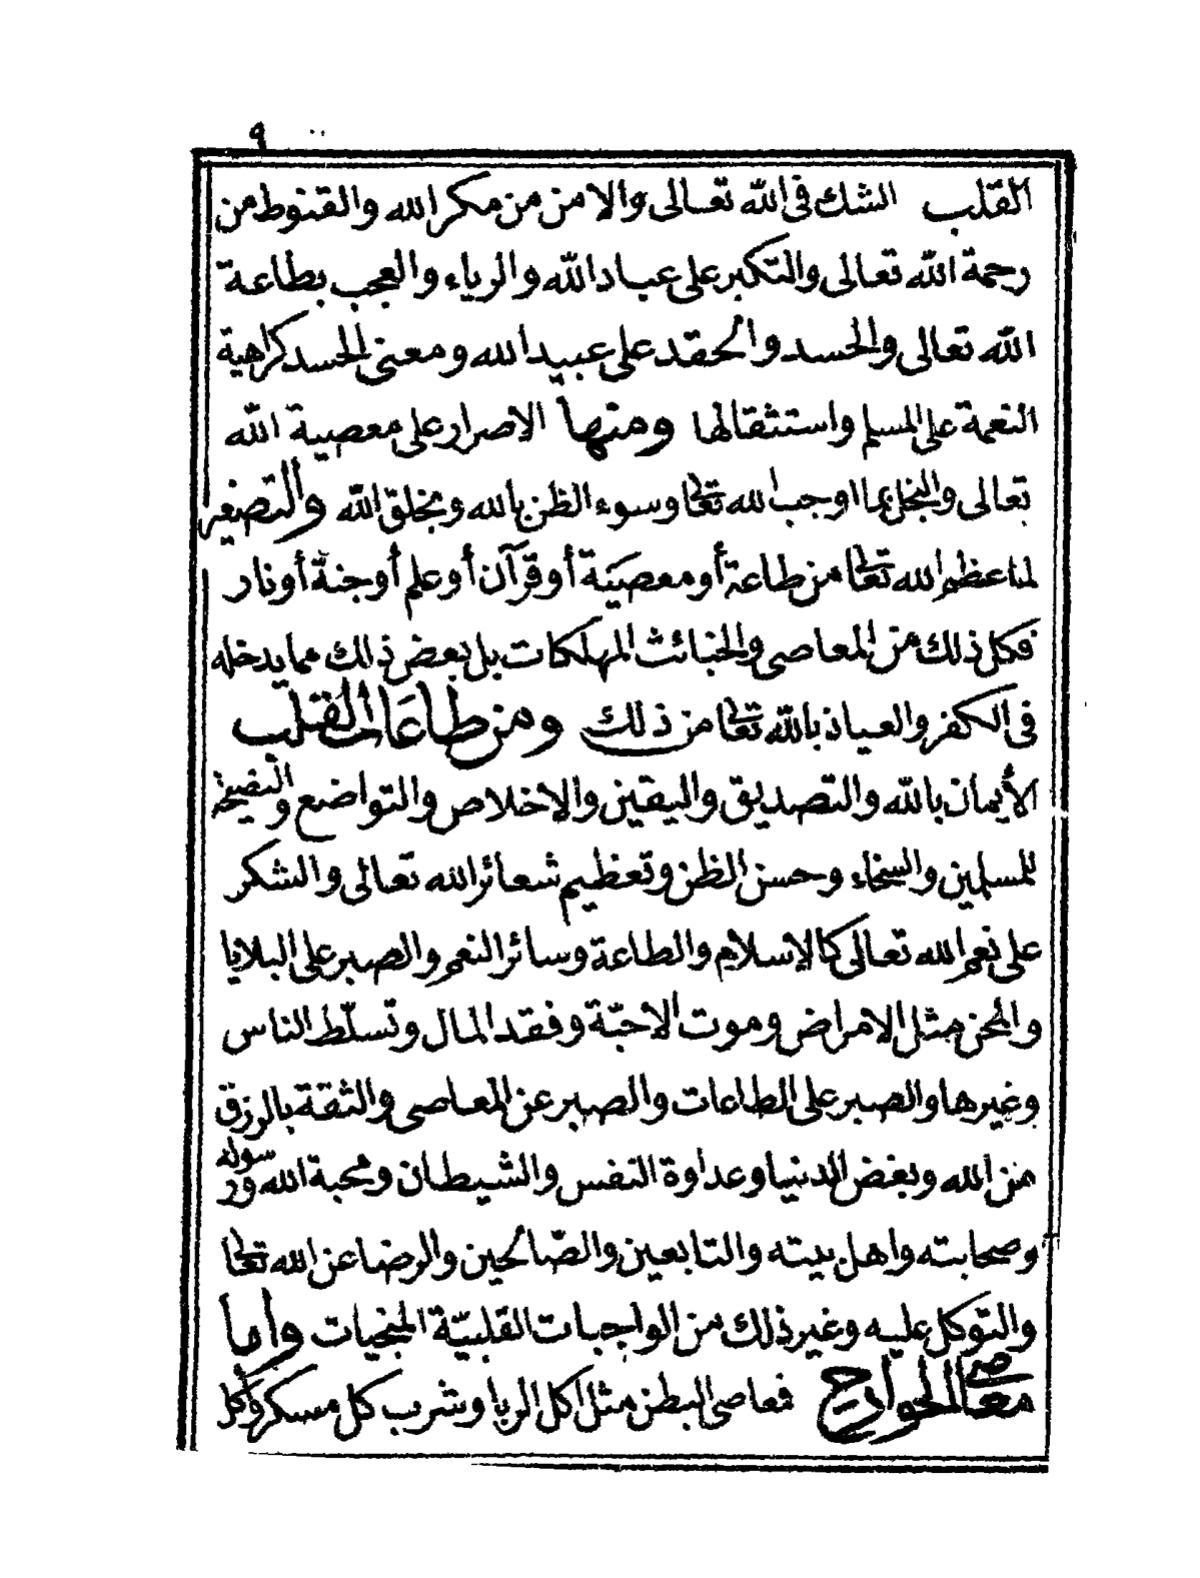 ٩
القلب الشك في الله تعالى والامن من مكر الله والقنوط من
رحمة الله تعالى والتكبر على عباد الله والرياء والعجب بطاعة
الله تعالى والحسد والحقد على عبيد الله ومعنى الحسد كراهية
النعمة على المسلم واستثقالها ومنها الاصرار على معصية الله
تعالى والبخل بما اوجب الله تعالى وسوء الظن بالله وبخلق الله والتصغير
لما عظم الله تعالى من طاعة أو معصية أو قرآن أو علم أو جنة أو نار
فكل ذلك من المعاصي والخبائث المهلكات بل بعض ذلك مما يدخله
في الكفر والعياذ بالله تعالى من ذلك ومن طاعات القلب
الأيمان بالله والتصديق واليقين والاخلاص والتواضع والنصيحة
للمسلمين والسخاء وحسن الظن وتعظيم شعائر الله تعالى والشكر
على نعم الله تعالى كالاسلام والطاعة وسائر النعم والصبر على البلايا
والمحن مثل الامراض وموت الاحبّة وفقد المال وتسلّط الناس
وغيرها والصبر على الطاعات والصبر عن المعاصي والثقة بالرزق
من الله وبغض الدنيا وعداوة النفس والشيطان ومحبة الله ورسوله
وصحابته واهل بيته والتابعين والصّالحين والرضا عن الله تعالى
والتوكل عليه وغير ذلك من الواجبات القلبيّة المنجيات واما
معاصي الجوارح فمعاصي البطن مثل اكل الربا وشرب كل مسكر واكل